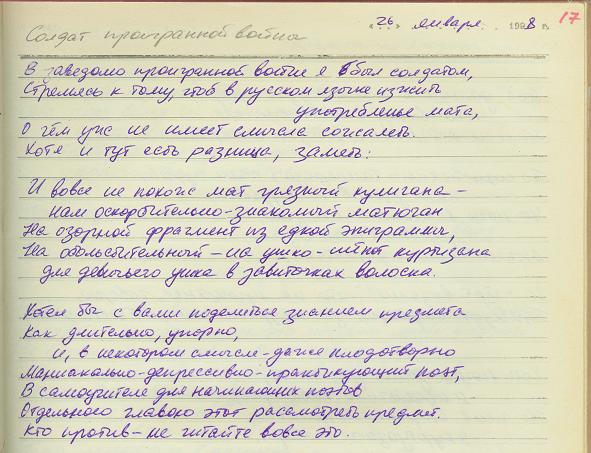 17
"26" января 1998 г.
Солдат проигранной войны
В заведомо проигранной войне я был солдатом,
Стремясь к тому, чтоб в русском языке изжить
употребленье мата,
О чём уже не имеет смысла сожалеть.
Хотя и тут есть разница, заметь:
И вовсе не похож мат грязный хулигана –
нам оскорбительно-знакомый матюган
На озорной фрагмент из едкой эпиграммы,
На обольстительный – на ушко – шёпот куртизана
для девичьего ушка в завиточках волосна.
Хотел бы с вами поделиться знанием предмета
Как длительно, упорно,
и, в некотором смысле – даже плодотворно
Маниакально-депрессивно-практикующий поэт,
В самоучителе для начинающих поэтов
Отдельною главою этот рассмотреть предмет.
Кто против – не читайте вовсе это.